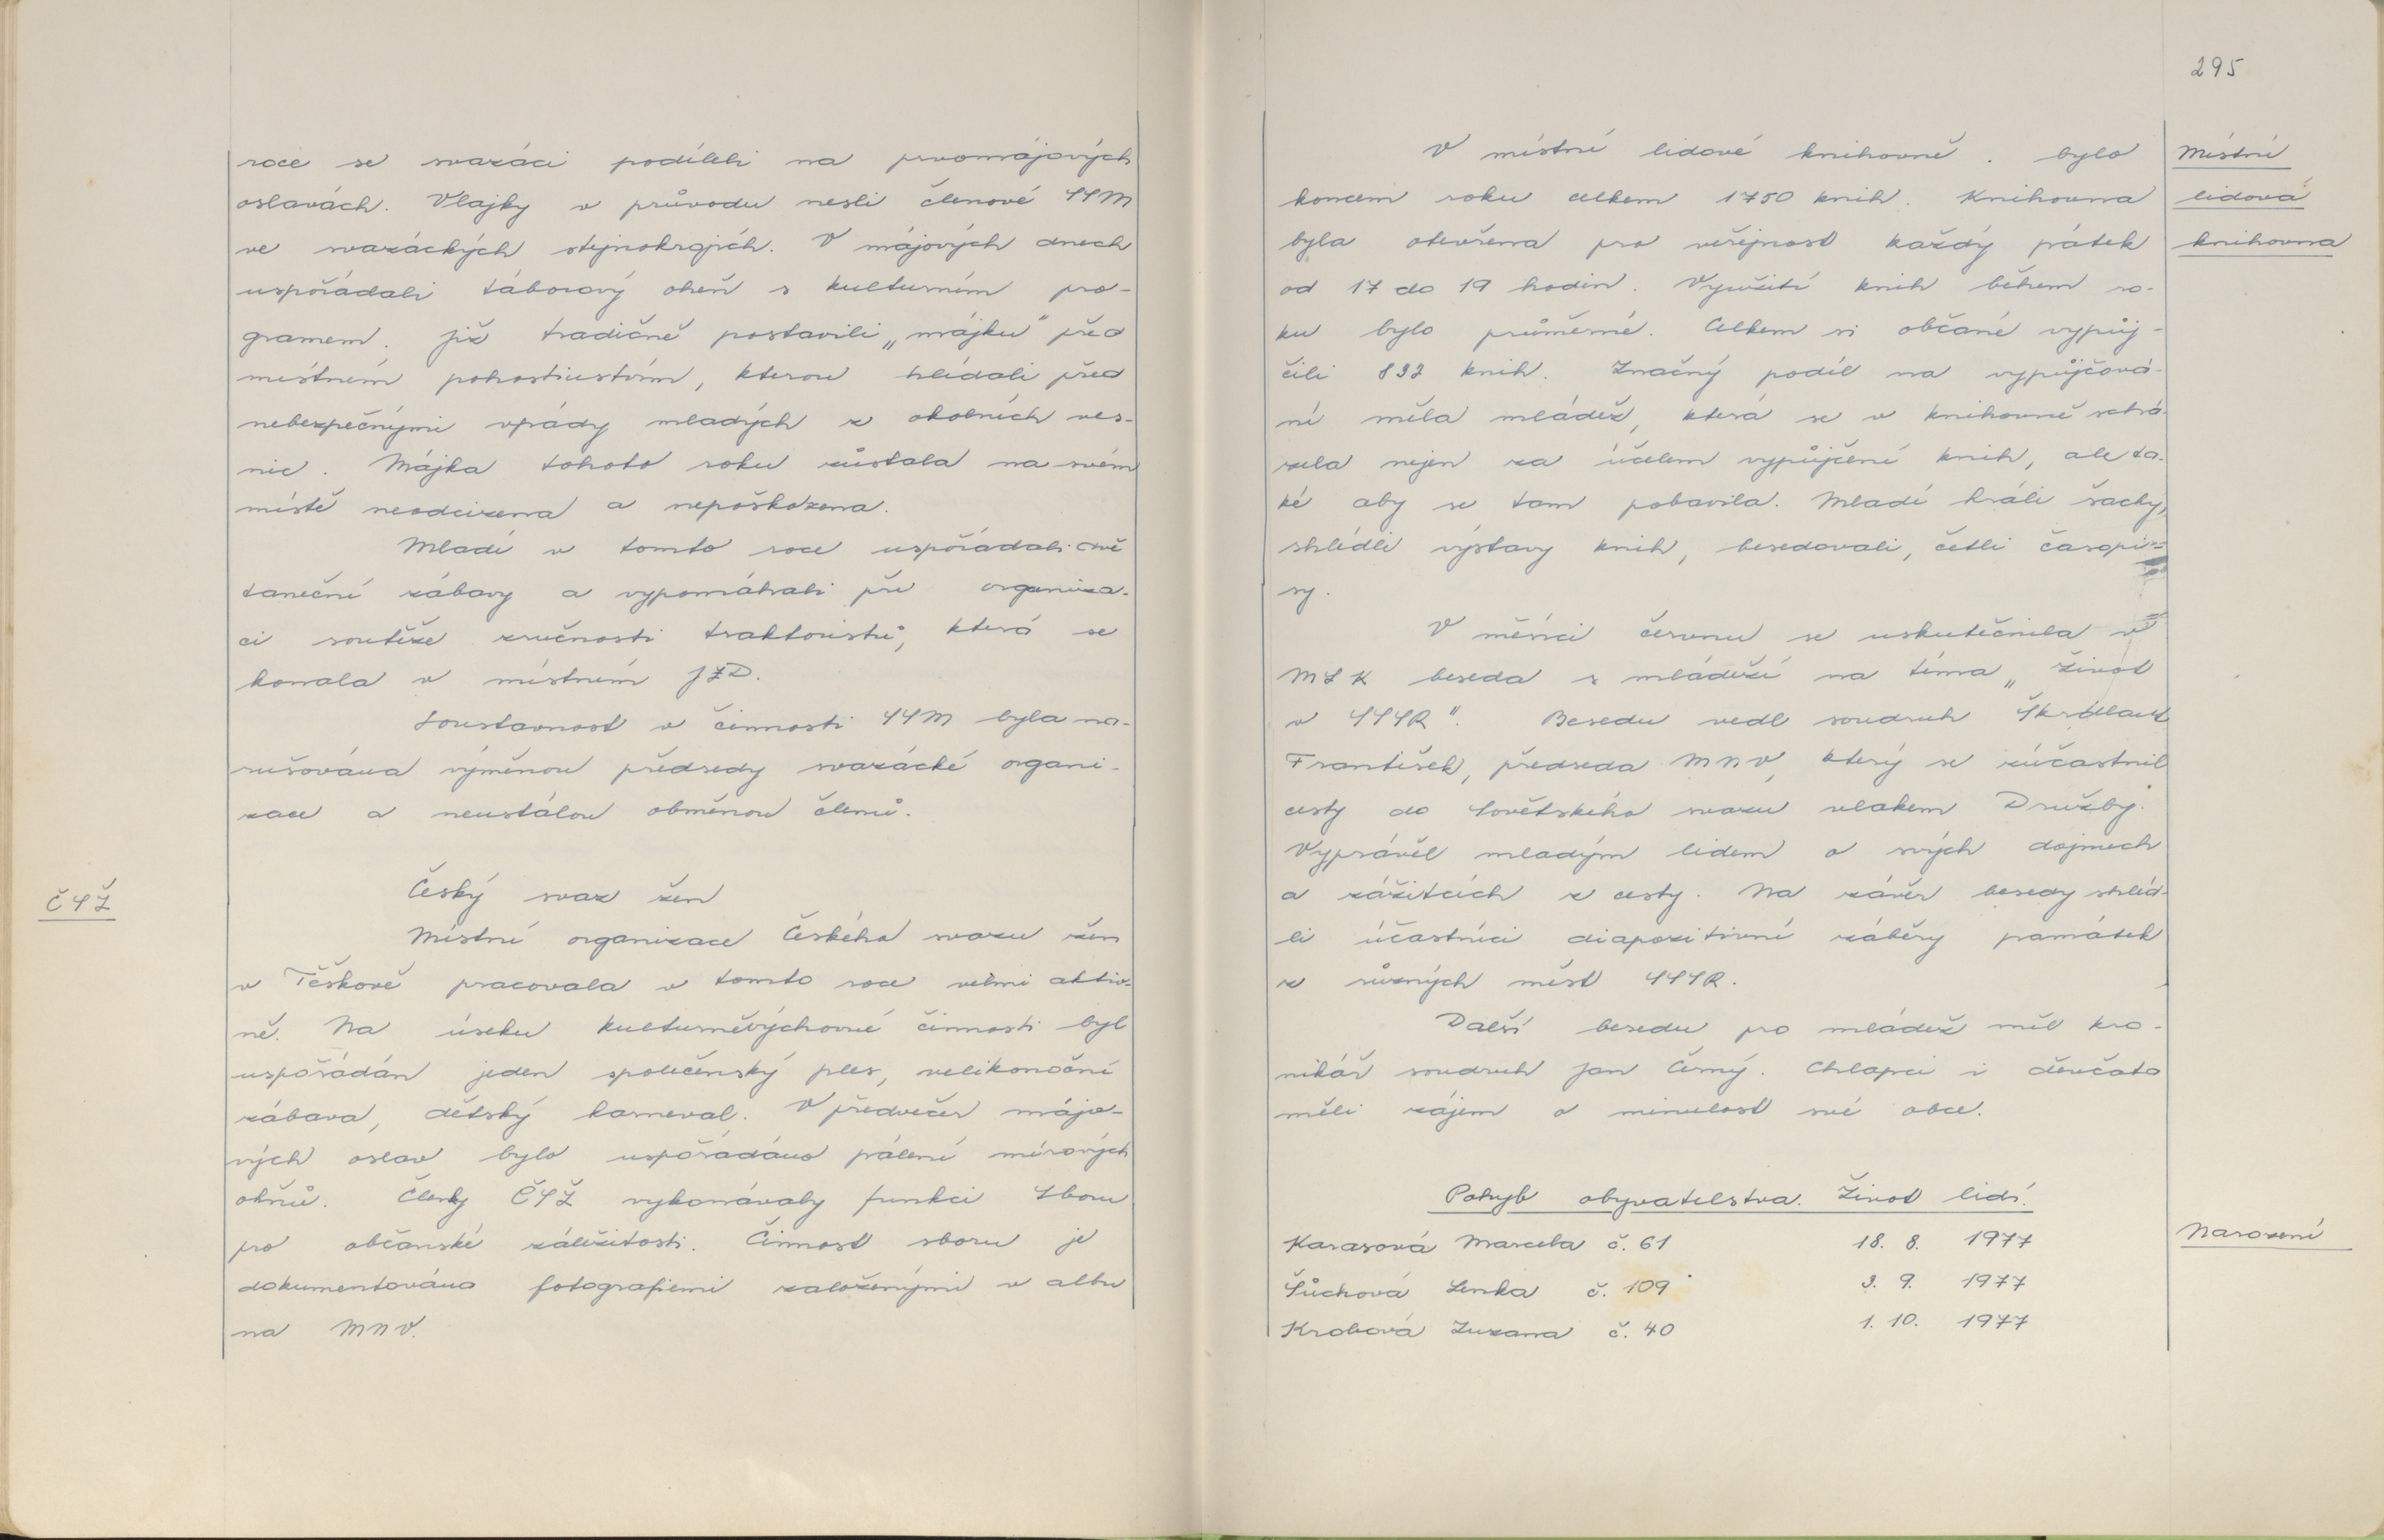 roce se svazáci podíleli na prvomájových
oslavách. Vlajky v průvodu nesli členové SSM
ve svazáckých stejnokrojích. V májových dnech
uspořádali táborový oheň s kulturním pro-
gramem. Již tradičně postavili „májku" před
místním pohostinstvím, kterou hlídali před
nebezpečnými vpády mladých z okolních ves-
nic. Májka tohoto roku zůstala na svém
místě neodcizena a nepoškozena.
Mladí v tomto roce uspořádali dvě
taneční zábavy a vypomáhali při organiza-
ci soutěže zručnosti traktoristů, která se
konala v místním JZD.
Soustavnost v činnosti SSM byla na-
rušována výměnou předsedy svazácké organi-
zace a neustálou obměnou členů.
ČSŽ
Český svaz žen
Místní organizace Českého svazu žen
v Těškově pracovala v tomto roce velmi aktiv-
ně. Na úseku kulturněvýchovné činnosti byl
uspořádán jeden společenský ples, velikonoční
zábava, dětský karneval. V předvečer májo-
vých oslav bylo uspořádáno pálení mírových
ohňů. Členky ČSŽ vykonávaly funkci Sboru
pro občanské záležitosti. Činnost sboru je
dokumentována fotografiemi založenými v albu
na MNV.
295
V místní lidové knihovně . bylo
koncem roku celkem 1750 knih. Knihovna
byla otevřena pro veřejnost každý pátek
od 17 do 19 hodin. Využití knih během ro-
ku bylo průměrné. Celkem si občané vypůj-
čili 832 knih. Značný podíl na vypůjčová-
ní měla mládež, která se v knihovně schá-
zela nejen za účelem vypůjčení knih, ale ta-
ké aby se tam pobavila. Mladí hráli šachy,
shlédli výstavy knih, besedovali, četli časopi-
sy.
Místní
lidová
knihovna
V měsíci červnu se uskutečnila v
MLK beseda s mládeží na téma „Život
v SSSR". Besedu vedl soudruh Škrdlant
František, předseda MNV, který se zúčastnil
cesty do Sovětského svazu vlakem Družby.
Vyprávěl mladým lidem o svých dojmech
a zážitcích z cesty. Na závěr besedy shléd-
li účastníci diapozitivní záběry památek
z různých měst SSSR.
Další besedu pro mládež měl kro-
nikář soudruh Jan Černý. Chlapci i děvčata
měli zájem o minulost své obce.
Pohyb obyvatelstva. Život lidí.
Narození
Karasová Marcela č. 61 18. 8. 1977
Šůchová Lenka č. 109 3. 9. 1977
Krobová Zuzana č. 40 1. 10. 1977